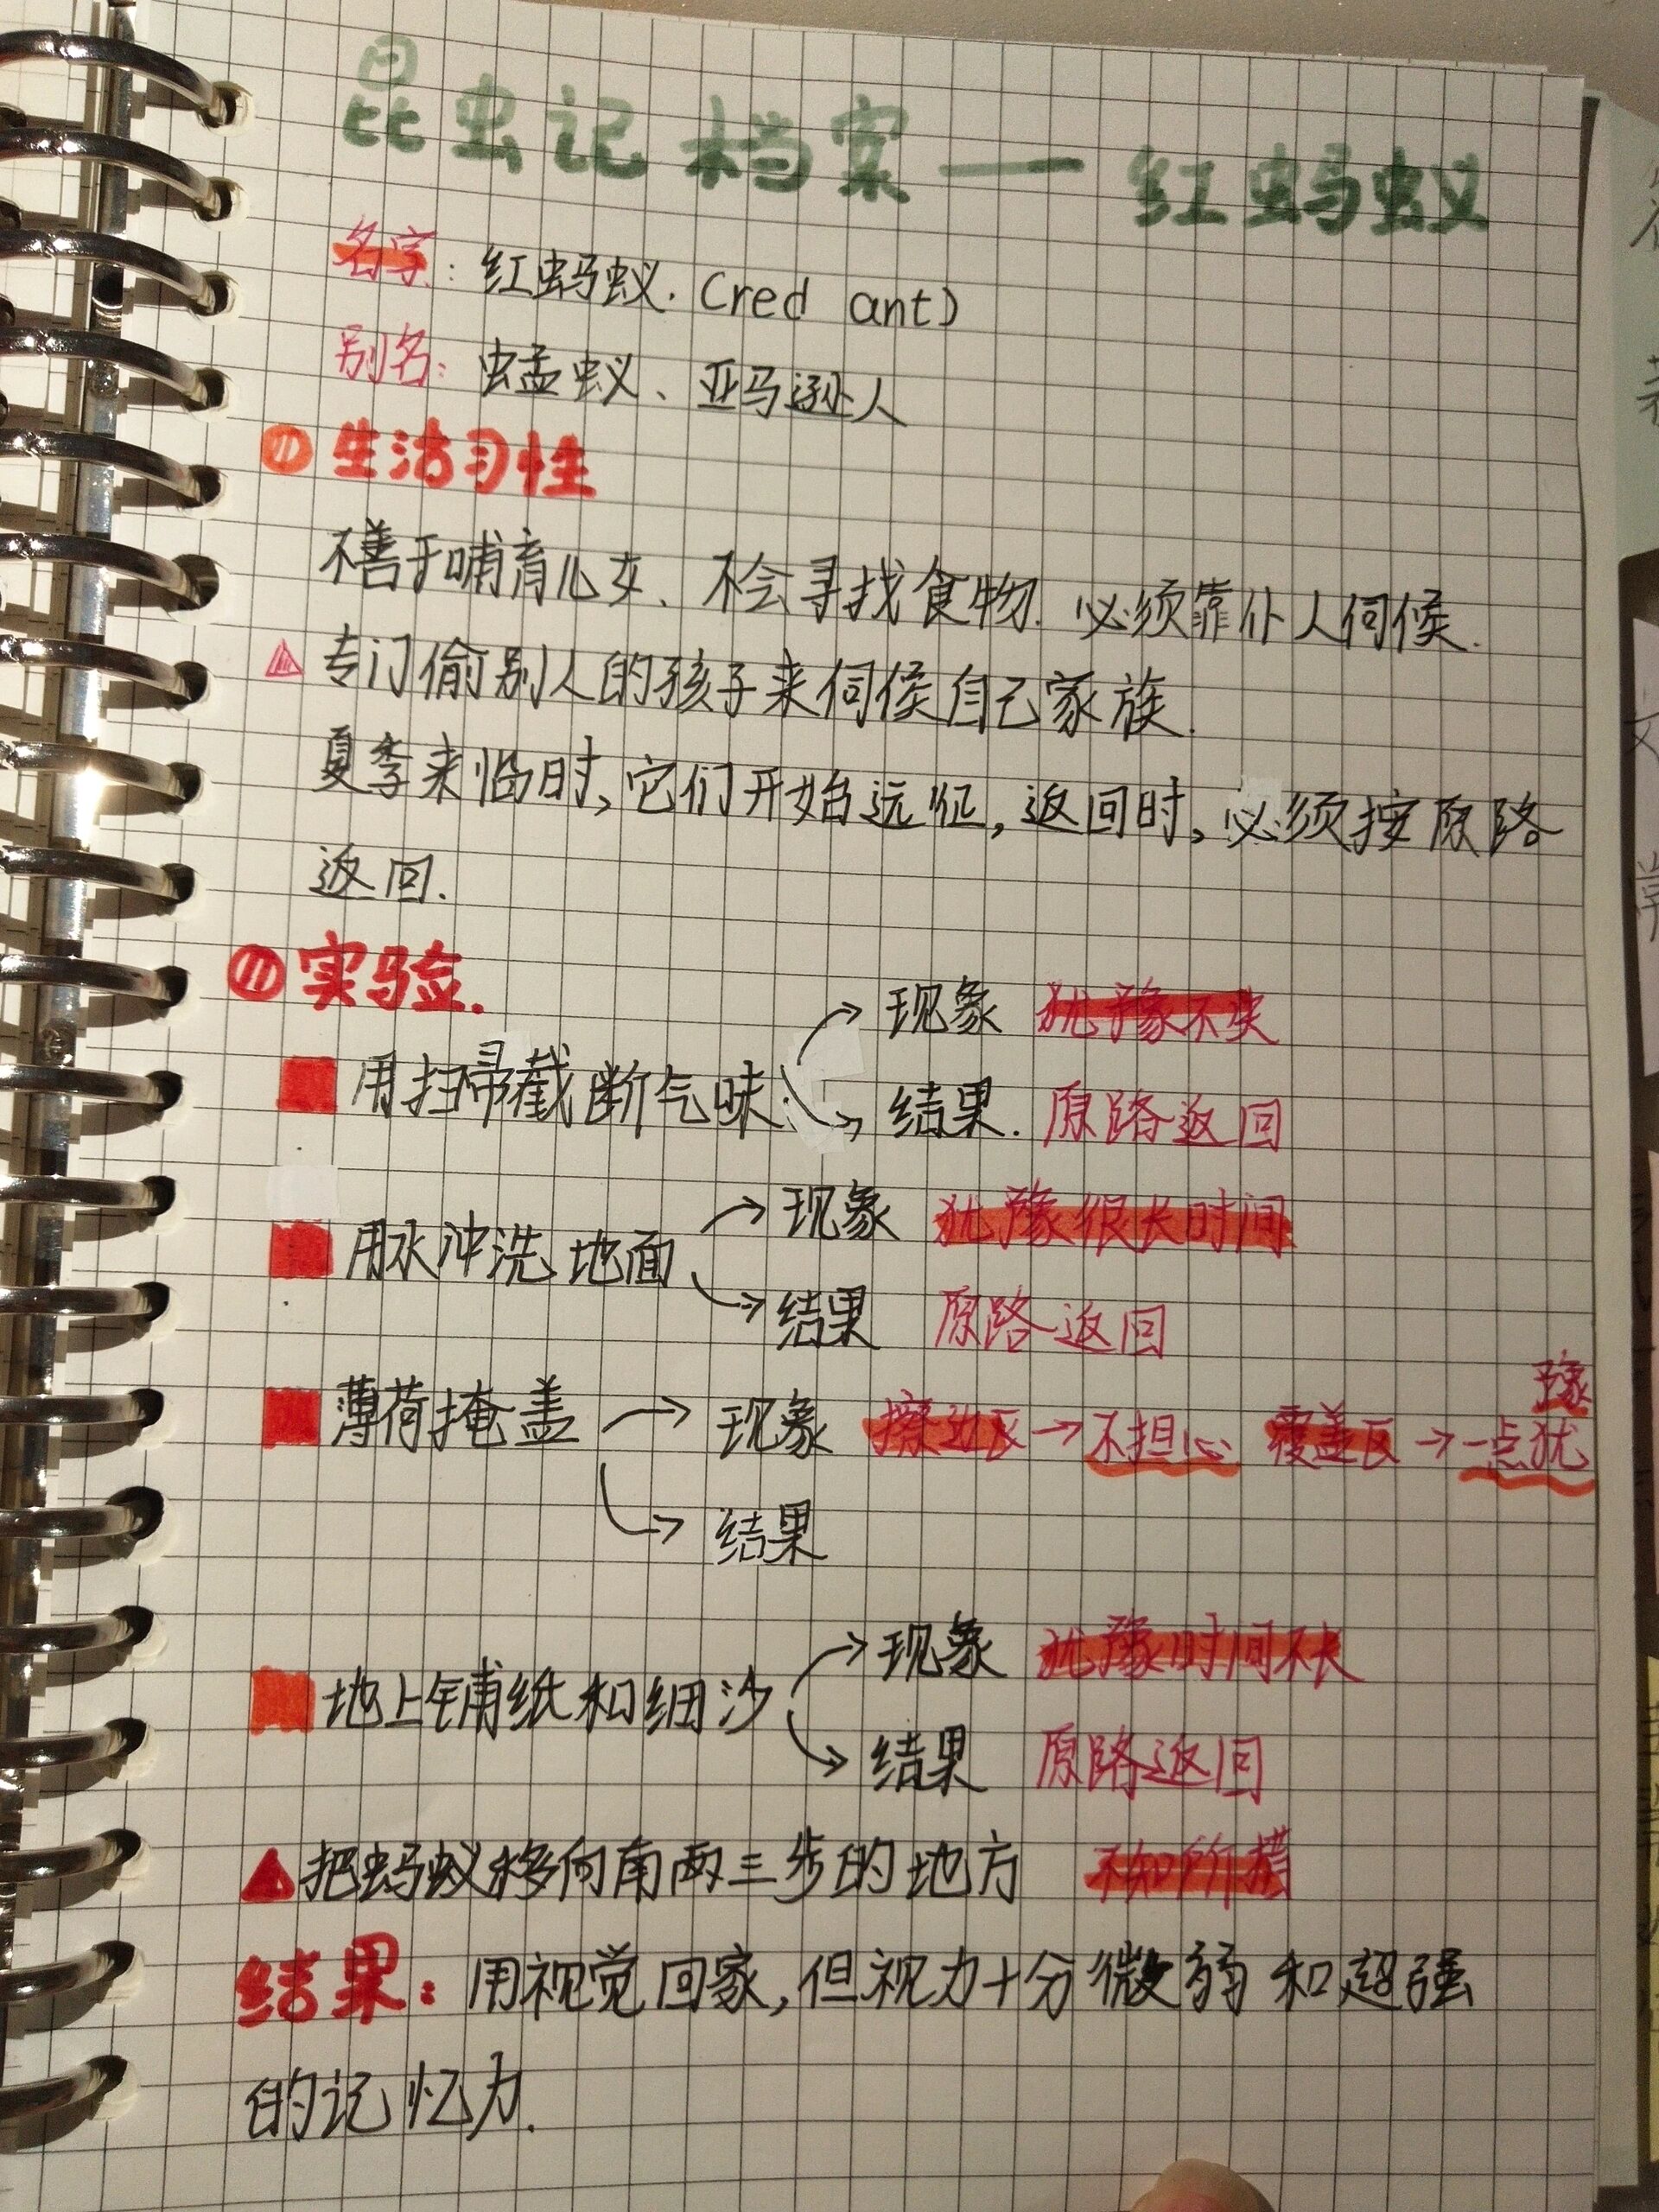 昆虫记档案——红蚂蚁
名字：红蚂蚁.(red ant)
别名：蜢蚁、亚马逊人
① 生活习性
不善于哺育儿女、不会寻找食物.必须靠仆人伺候.
专门偷别人的孩子来伺候自己家族.
夏季来临时,它们开始远征,返回时,必须按原路
返回.
② 实验.
→现象 犹豫不决
用扫帚截断气味
→结果.原路返回
→现象 犹豫很长时间
用水冲洗地面
→结果 原路返回
豫
薄荷掩盖→现象 擦边区→不担心 覆盖区→一点犹
→结果
→现象 犹豫时间不长
地上铺纸和细沙
→结果 原路返回
把蚂蚁移向南两三步的地方 不知所措
结果：用视觉回家,但视力十分微弱和超强
的记忆力.